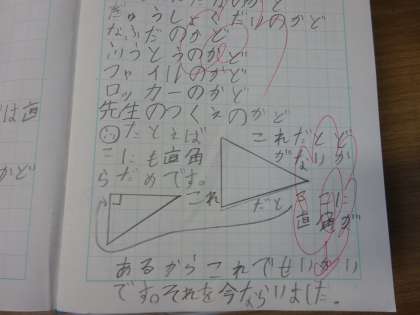 だゅうしょくだいのかど
なふだのかど
ふうとうのかど
ファイルのかど
ロッカーのかど
先生のつくえのかど
たとえば
こにも直角
らだめです。
これだとど
がないか
これ
だと
ここに
直角が
あるからこれでもいいかい
です。それを今ならいました。
は直
かど